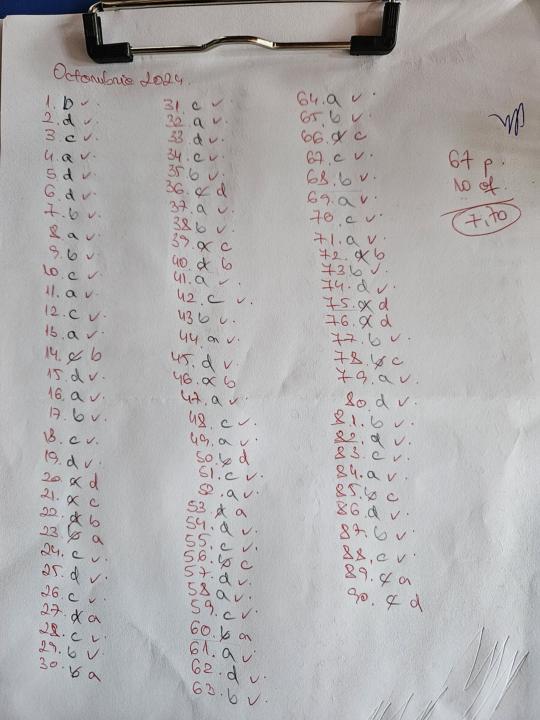 Octombrie 2024.
1. b v.
2. d v.
3. c v.
4. a v.
5. d v.
6. d v.
7. b v.
8. a v.
9. b v.
10. c v.
11. a v.
12. c v.
13. a v.
14. c b
15. d v.
16. a v.
17. b v.
18. c v.
19. d v.
20. a d
21. a c
22. d b
23. b a
24. c v.
25. d v.
26. c v.
27. d a
28. c v.
29. b v.
30. b a
31. c v.
32. a v.
33. d v.
34. c v.
35. b v.
36. c d
37. a v.
38. b v.
39. a c
40. d b
41. a v.
42. c v.
43. b v.
44. a v.
45. d v.
46. a b
47. a v.
48. c v.
49. a v.
50. b d
51. c v.
52. a v.
53. d a
54. d v.
55. c v.
56. b c
57. d v.
58. a v.
59. c v.
60. b a
61. a v.
62. d v.
63. b v.
64. a v.
65. b v.
66. d c
67. c v.
68. b v.
69. a v.
70. c v.
71. a v.
72. d b
73. b v.
74. d v.
75. d
76. d
77. b v.
78. b c
79. a v.
80. d v.
81. b v.
82. d v.
83. c v.
84. a v.
85. b c
86. d v.
87. b v.
88. c v.
89. c a
90. c d
67 p.
10 of.
7,70